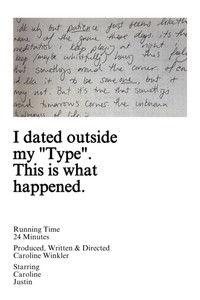 ide uh but patience just seems like the
name of the game these days. it's the
meditation i keep playing at night
keep maybe wistfully
that something's around the corner
i'd like it to be someone, but it
may not. But it's true that something
and tomorrows corner. the unknown
I dated outside
my "Type".
This is what
happened.
Running Time
24 Minutes
Produced, Written & Directed
Caroline Winkler
Starring
Caroline
Justin